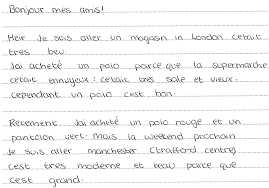 Bonjour mes amis!
Heir Je suis aller un magasin in London cetait
tres beu.
Jai acheté un polo parce que la supermarche
cetait ennuyeux: cetait tres salle et vieux.
cependant un polo cest bon.
Recement Jai acheté un polo rouge et un
pantalon vert. Mais la weekend prochain
Je suis aller manchester (trafford centre)
cest tres moderne et beau parce que
cest grand.